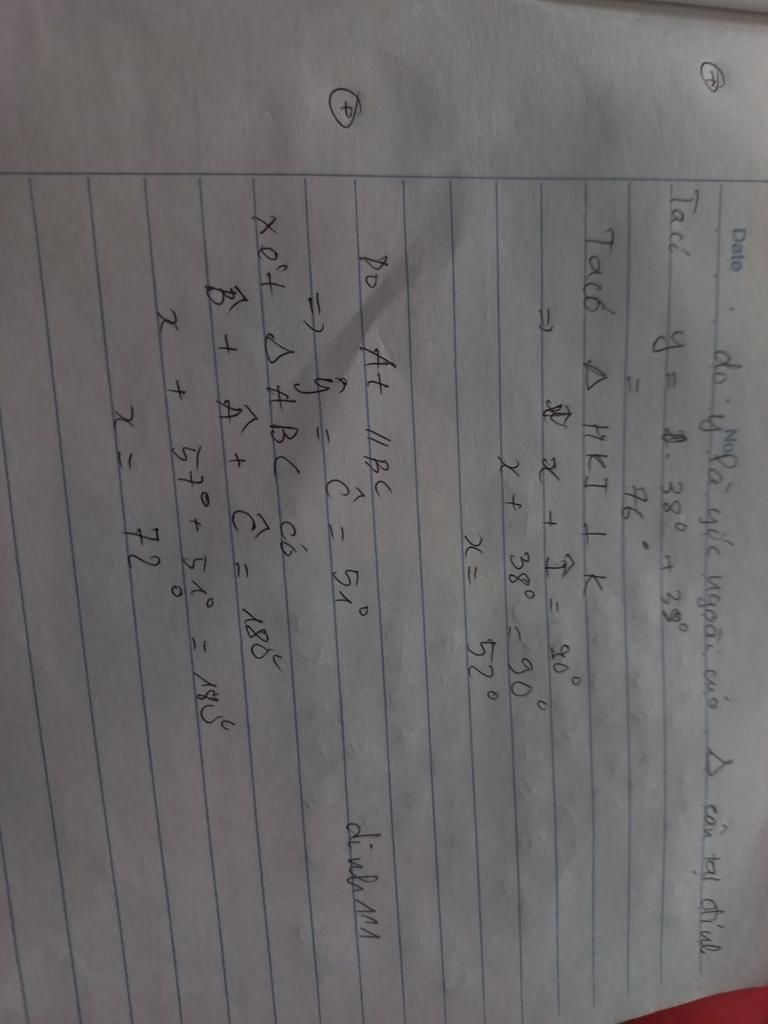 Date . No
do y là góc ngoài của Δ cân tại đỉnh
Tacó y = 38° + 38°
= 76°
Tacó Δ HKI ⊥ K
=> x + Î = 90°
x + 38° = 90°
x = 52°
Do At // BC
=> ŷ = Ĉ = 51°
xét Δ ABC có
B̂ + Â + Ĉ = 180°
x + 57° + 51° = 180°
x = 72°